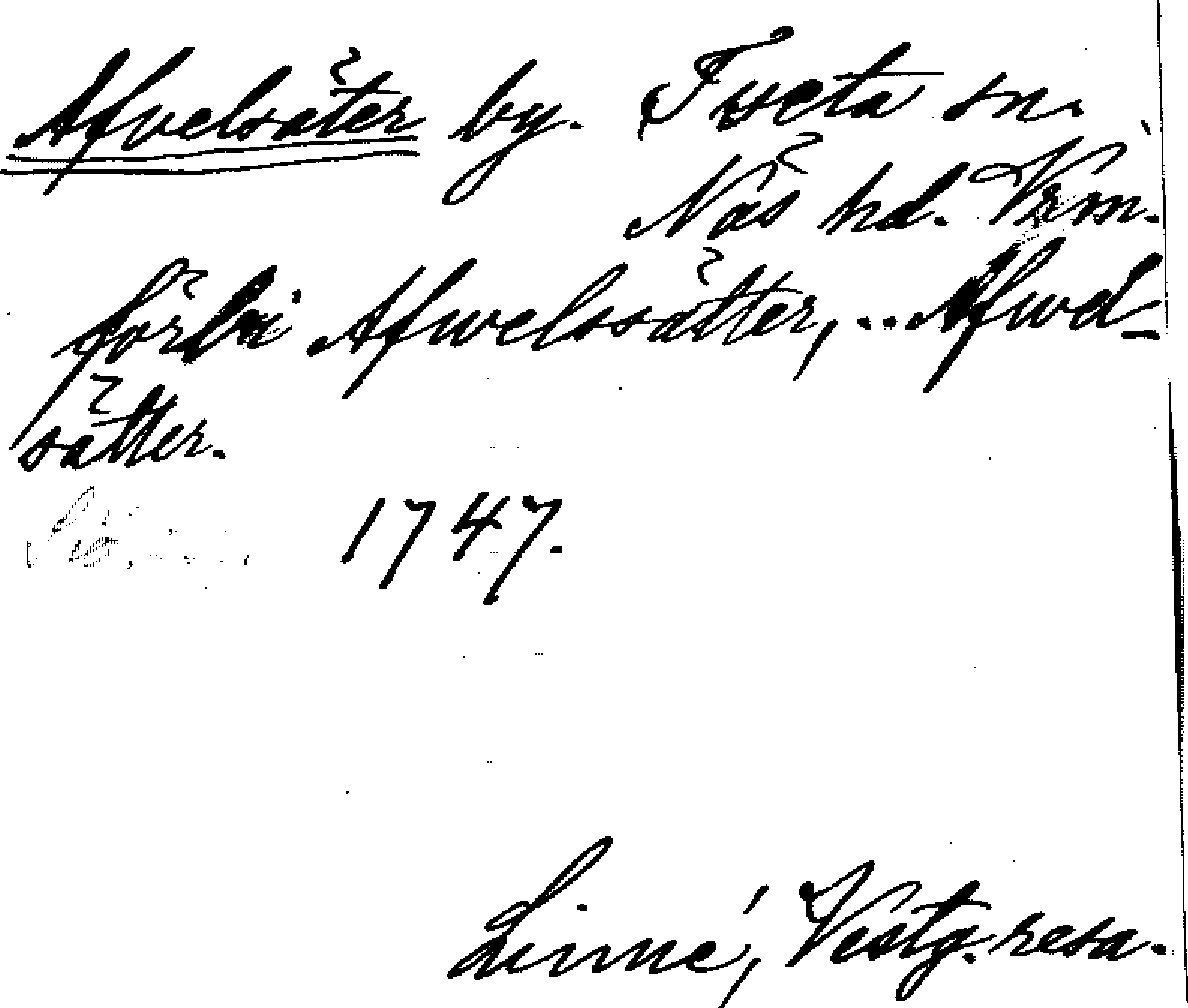 Afvelsäter by. Tveta sn.
Näs hd. Vrm.
förbi Afwelssätter, .. Afwel-
sätter.
1747.
Linné, Vestg. resa.